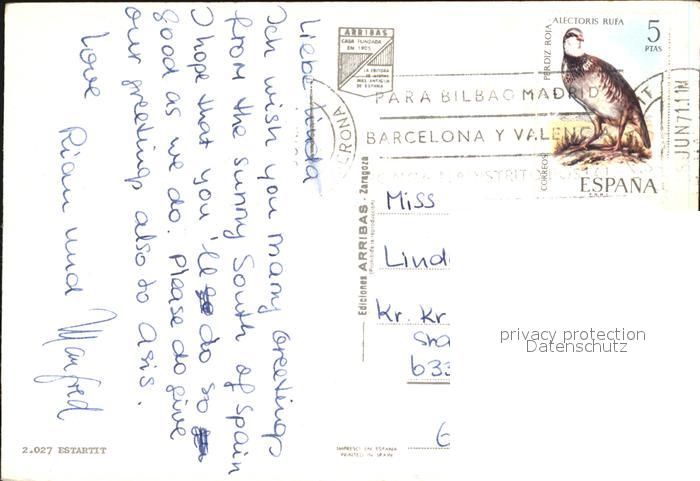 Liebe Linda
Ich wish you many greetings
from the sunny South of Spain
I hope that you'll do so
good as we do. Please do give
our greetings also to Asis.
Love
Rian und Manfred
2.027 ESTARTIT
ARRIBAS
CASA FUNDADA
EN 1905
Ediciones ARRIBAS - Zaragoza
(Prohibida la reproducción)
IMPRESO EN ESPAÑA
PRINTED IN SPAIN
ALECTORIS RUFA
PERDIZ ROJA
5
PTAS
CORREOS
ESPAÑA
PARA BILBAO MADRID
BARCELONA Y VALENCIA
GERONA
JUN 71
Miss
Lind
Kr. Kr
Sra
633
6
privacy protection
Datenschutz